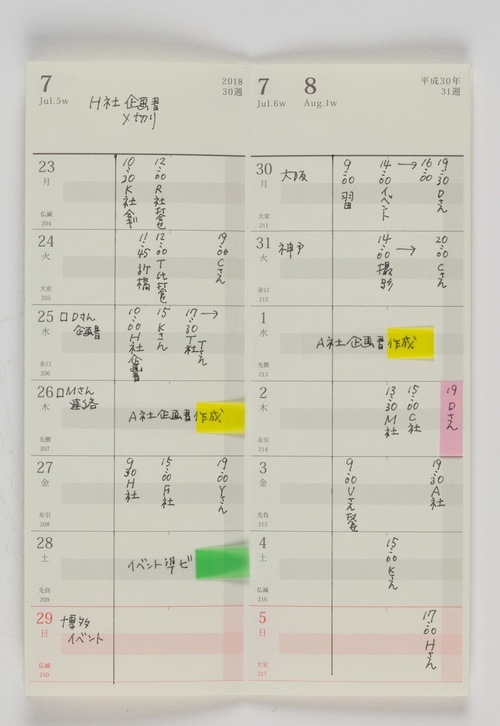 7
Jul.5w
H社 企画書
〆切り
2018
30週
23
月
仏滅
204
10:20 K社
12:00 R社
24
火
大安
205
11:45 新橋
12:00 T社
19:00 Cさん
25
水
赤口
206
□Dさん
企画書
10:00 H社 企画書
15 Kさん
17:30 → T社 Tさん
26
木
先勝
207
□Mさん
連絡
A社企画書作成
27
金
友引
208
9:30 H社
15:00 F社
19:00 Yさん
28
土
先負
209
イベント準ビ
29
日
仏滅
210
博多
イベント
7
Jul.6w
8
Aug.1w
平成30年
31週
30
月
大安
211
大阪
9:00 習
14:00 → 16:00 イベント
19:30 Dさん
31
火
赤口
212
神戸
14:00 → 撮影
20:00 Cさん
1
水
先勝
213
A社企画書作成
2
木
友引
214
13:30 M社
15:00 C社
19 Dさん
3
金
先負
215
9:00 Vさん
19:30 A社
4
土
仏滅
216
15:00 Kさん
5
日
大安
217
17:00 Hさん